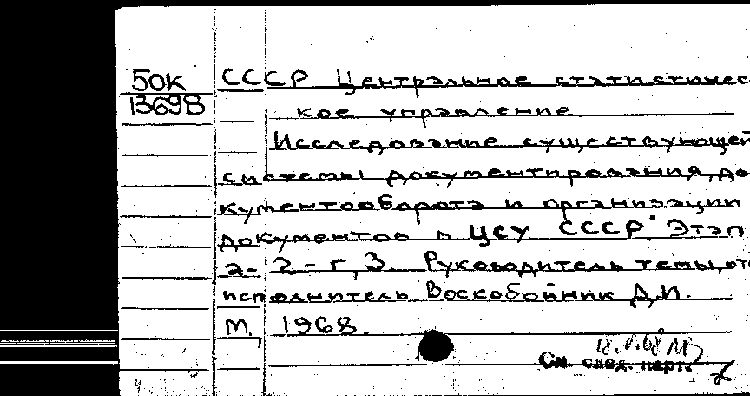 50к СССР Центральное статистичес
13698 кое управление
Исследование существующей
системы документирования, до
кументооборота и организации
документов в ЦСУ СССР Этап
2-г, 3. Руководитель темы, от
исполнитель Воскобойник Д.И.
М., 1968.
См. след. карт.